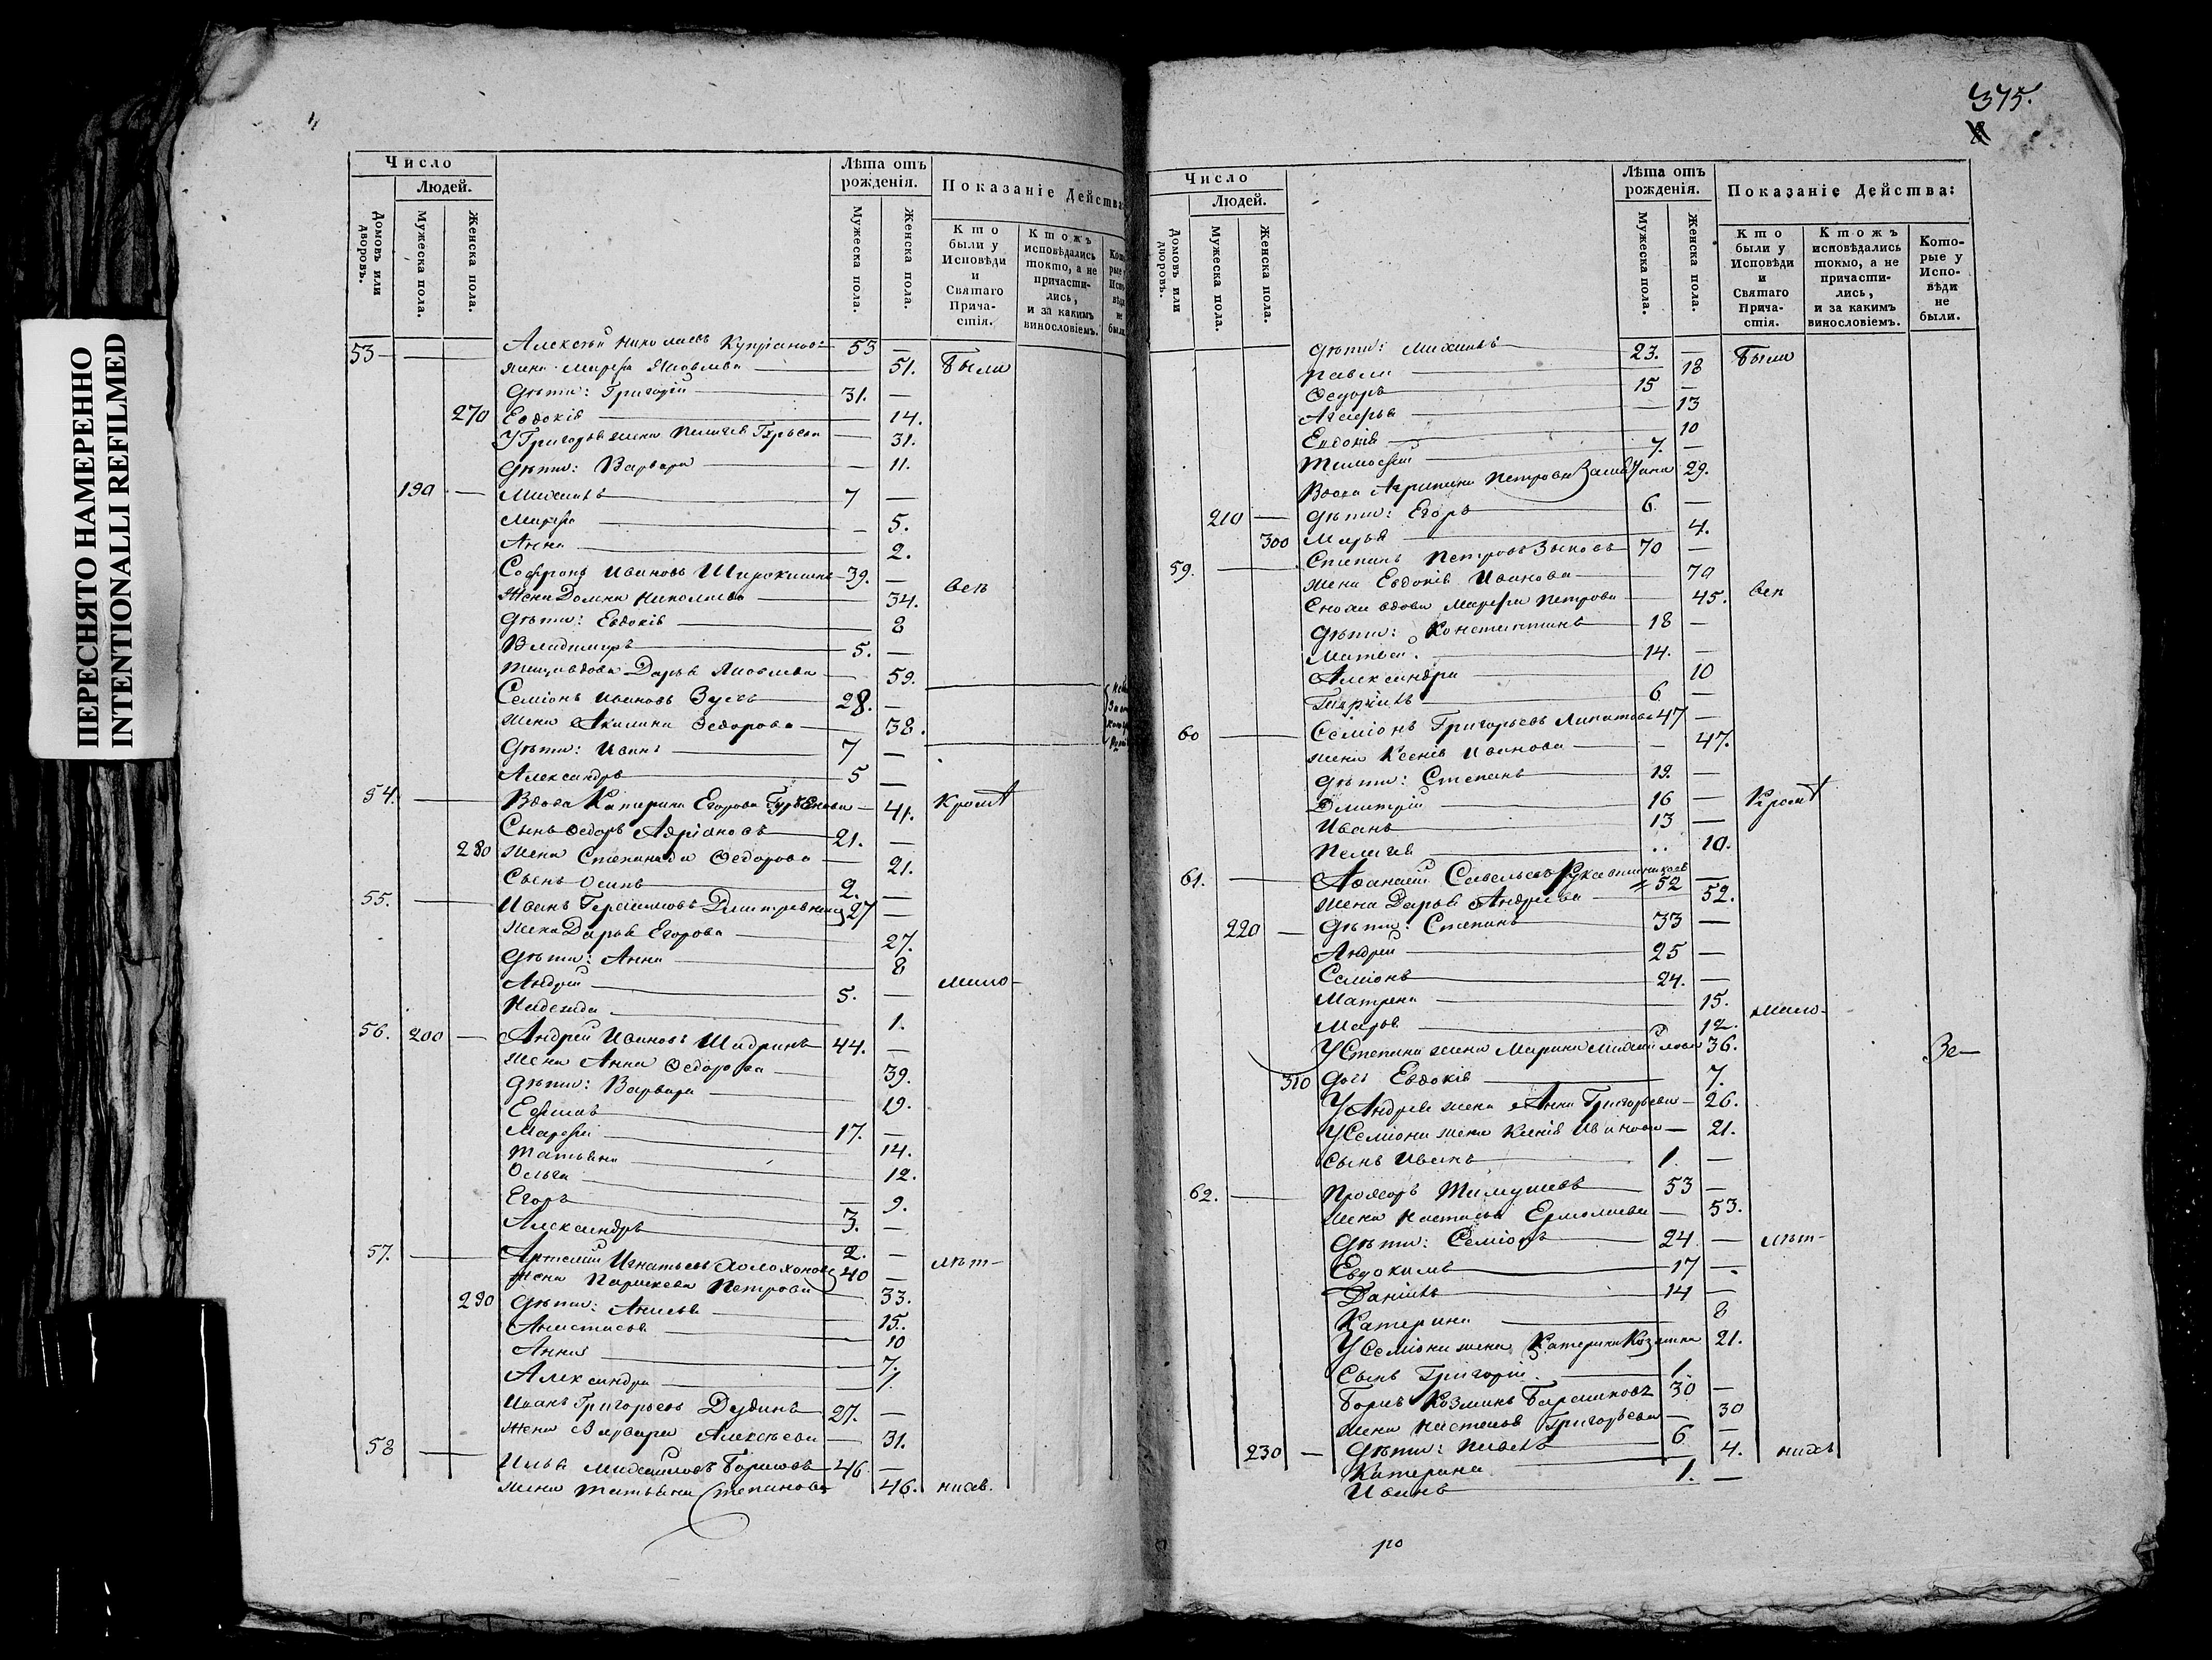 ПЕРЕСНЯТО НАМЕРЕННО
INTENTIONALLI REFILMED
Число
Людей.
Домовъ или дворовъ.
Мужеска пола.
Женска пола.
Лѣта отъ рожденія.
Мужеска пола.
Женска пола.
Показаніе Действа
Кто были у Исповѣди и Святаго Прича-стія.
Ктожъ исповѣдались токмо, а не причасти-лись, и за какимъ винословіемъ.
53 — Алексѣй Николаевъ Купріановъ 53 —
жена Марѳа Яковлева — 51. Были
Дѣти: Григорій 31. —
270 Евдокія 14.
У Григорья жена Пелагея — 31.
Дѣти: Варвара — 11.
190 — Михаилъ 7 —
Марѳа — 5.
Анна 2.
Софронъ Ивановъ 39. —
Жена Домна Николаева 34. веп
Дѣти: Евдокія 8
Владимиръ 5. —
вдова Дарья Яковлева 59.
Семіонъ Ивановъ Зуевъ 28. —
жена Акилина Ѳедорова 38.
Дѣти: Иванъ 7 —
Александръ 5 —
54. — Вдова Катерина Егорова 41. кромѣ
Сынъ Ѳедоръ Адріановъ 21. —
280 жена Степанида Ѳедорова 21.
Сынъ Осипъ 2. —
55. — Иванъ Герасимовъ 27 —
жена Дарья Егорова 27.
Дѣти: Анна 8
Андрей 5. — мало-
Надежда 1.
56. 200 — Андрей Ивановъ Шадринъ 44. —
жена Анна Ѳедорова 39.
Дѣти: Варвара 19.
Ефимъ 17. —
Марѳа 14.
Татьяна 12.
Ольга 9.
Егоръ 3. —
Александръ 2. —
57. — Артемій Игнатьевъ 40 — лѣт-
жена Параскева Петрова 33.
290 Дѣти: Анисья 15.
Анастасья 10
Анна 7.
Александра 1.
Иванъ Григорьевъ Дудинъ 27. —
жена Варвара Алексѣева — 31.
58 — Илья Михайловъ 46 —
жена Татьяна Степанова 46. нихъ.
375.
Число
Людей.
Домовъ или дворовъ.
Мужеска пола.
Женска пола.
Лѣта отъ рожденія.
Мужеска пола.
Женска пола.
Показаніе Действа:
Кто были у Исповѣди и Святаго Прича-стія.
Ктожъ исповѣдались токмо, а не причасти-лись, и за какимъ винословіемъ.
Кото-рые у Испо-вѣди не были.
Дѣти: Михаилъ 23. — Были
18
Ѳедоръ 15 —
— 13
Евдокія 10
Тимофей 7. —
Вдова Агрипина Петрова 29.
210 — Дѣти: Егоръ 6 —
300 Марья 4.
59. — Степанъ Петровъ Зыковъ 70 —
жена Евдокія Иванова 70
Сноха вдова Марѳа Петрова 45. веп
Дѣти: Константинъ 18 —
Матвей 14. —
Александра 10
Гаврiилъ 6 —
60 — Семіонъ Григорьевъ Липатовъ 47 —
жена Ксенія Иванова — 47.
Дѣти: Степанъ 19. —
Дмитрій 16 — Кромѣ
Иванъ 13 —
Пелагея 10.
61. — Аѳанасій Савельевъ Рукавишниковъ 52 —
жена Дарья Андреева 52.
220 — Дѣти: Степанъ 33 —
Андрей 25 —
Семіонъ 24. —
Матрена 15. мало-
Марья 12.
У Степана жена Марина 36. Зе—
310 Дочь Евдокія 7.
У Андрея жена Анна Григорьева — 26.
У Семіона жена Ксенія Иванова — 21.
Сынъ Иванъ 1. —
62. — Прохоръ 53 —
жена Настасья Ермолаева — 53.
Дѣти: Семіонъ 24 — лѣт-
Евдокимъ 17 —
Даніилъ 14 —
Катерина 8
У Семіона жена Катерина Козмина 21.
Сынъ Григорій 1. —
Козминъ 30 —
жена Настасья Григорьева — 30
230 — Дѣти: Павелъ 6 — нихъ
Катерина 4.
Иванъ 1. —
ро